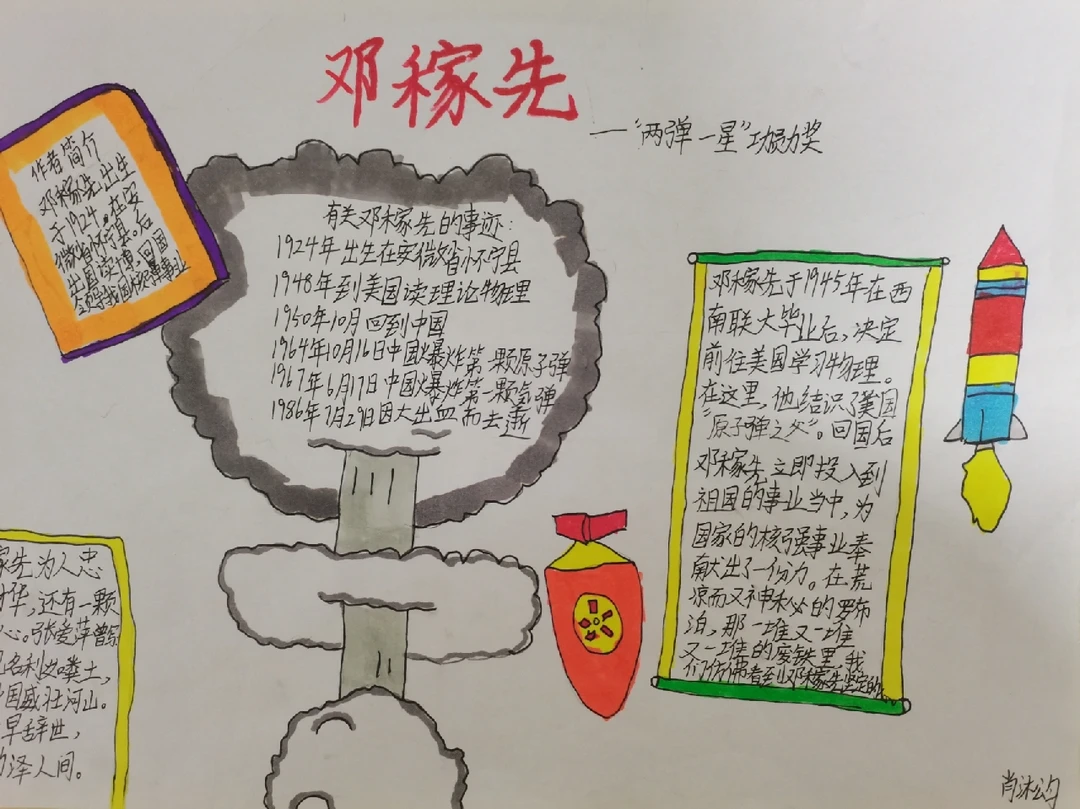 邓稼先
—"两弹一星"功勋奖
作者简介
邓稼先出生
于1924.在安
徽省怀宁县。后
出国读博,回国
有关邓稼先的事迹:
1924年出生在安徽省怀宁县
1948年到美国读理论物理
1950年10月回到中国
1964年10月16日中国爆炸第一颗原子弹
1967年6月17日中国爆炸第一颗氢弹
1986年7月29日因大出血而去逝
邓稼先于1945年在西
南联大毕业后,决定
前往美国学习物理。
在这里,他结识了美国
"原子弹之父"。回国后
邓稼先立即投入到
祖国的事业当中,为
国家的核强事业奉
献出了一份力。在荒
凉而又神秘的罗布
泊,那一堆又一堆
又一堆的废铁里,我
们仿佛看到邓稼先坚定的
家先为人忠
华,还有一颗
心。张爱萍曾
名利如粪土,
国威壮河山。
早辞世,
泽人间。